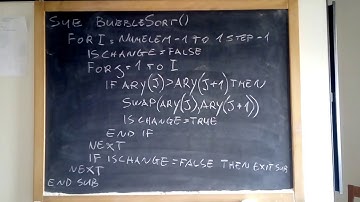 SUB BUBBLESORT()
FOR I = NUMELEM-1 TO 1 STEP -1
ISCHANGE=FALSE
FOR J = 1 TO I
IF ARY(J)>ARY(J+1) THEN
SWAP(ARY(J),ARY(J+1))
ISCHANGE=TRUE
END IF
NEXT
IF ISCHANGE=FALSE THEN EXIT SUB
NEXT
END SUB